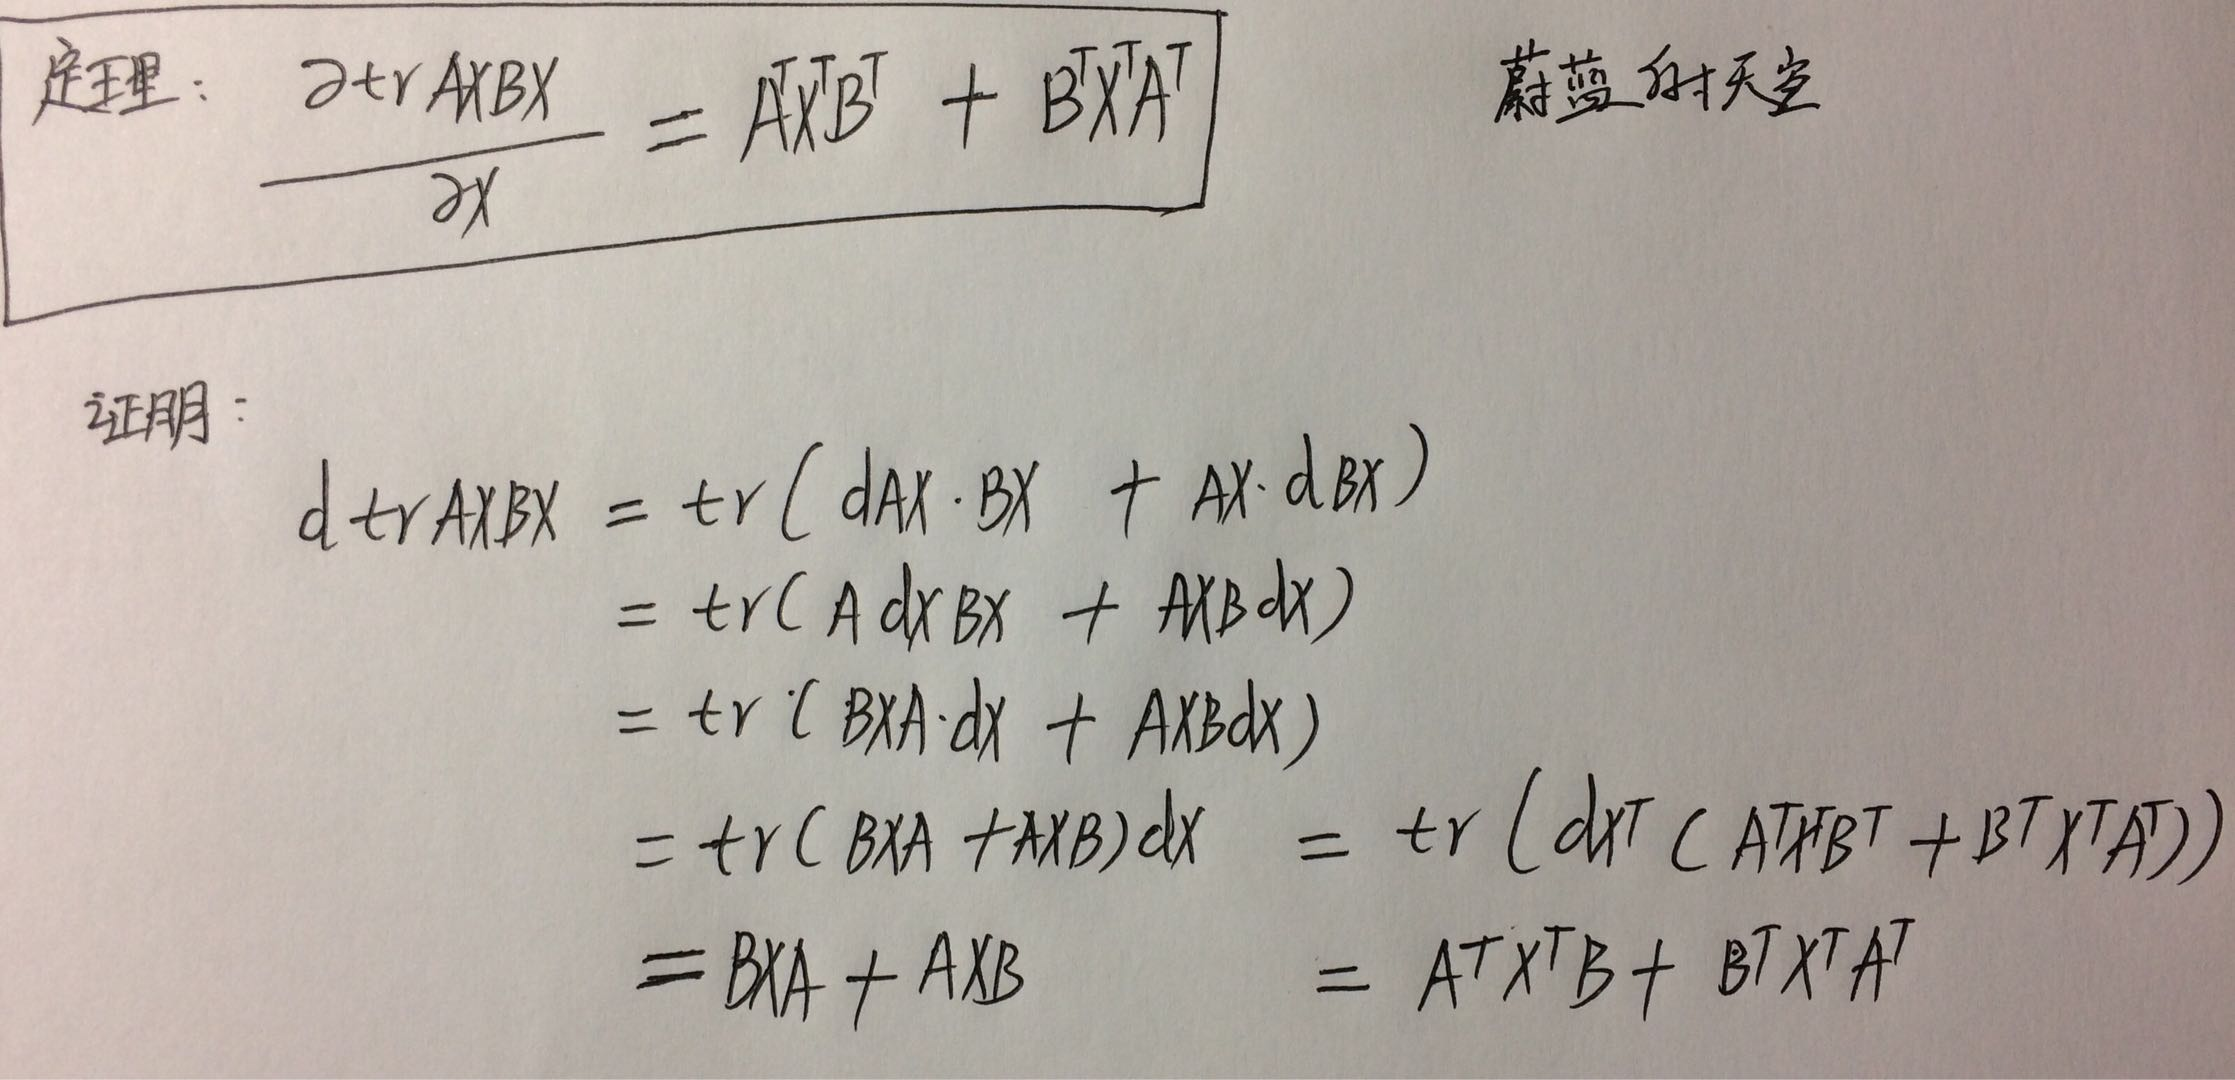 定理: ∂trAXBX / ∂X = AᵀXᵀBᵀ + BᵀXᵀAᵀ
蔚蓝的天空
证明:
d trAXBX = tr( dAX · BX + AX · dBX )
= tr( A dX BX + AXB dX )
= tr ( BXA · dX + AXB dX )
= tr( BXA + AXB ) dX = tr ( dXᵀ ( AᵀXᵀBᵀ + BᵀXᵀAᵀ ) )
= BXA + AXB = AᵀXᵀB + BᵀXᵀAᵀ